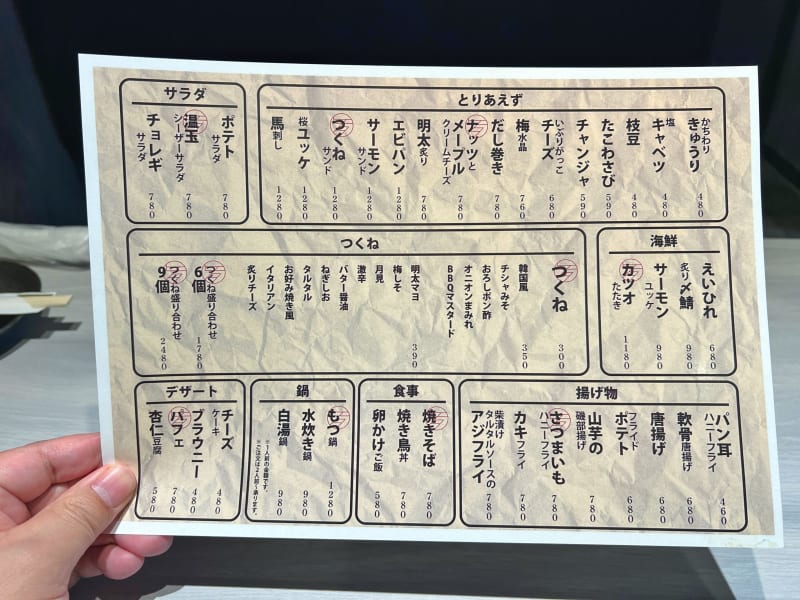 サラダ
ポテト
サラダ
780
温玉
シーザーサラダ
780
チョレギ
サラダ
780
とりあえず
かちわり
きゅうり
480
塩
キャベツ
480
枝豆
480
たこわさび
590
チャンジャ
590
いぶりがっこ
チーズ
680
梅水晶
760
だし巻き
780
ナッツと
メープル
クリームチーズ
780
明太炙り
780
エビパン
1280
サーモン
サンド
1280
つくね
サンド
1280
桜ユッケ
1280
馬刺し
1280
つくね
つくね
300
韓国風
350
チシャみそ
おろしポン酢
オニオンまみれ
BBQマスタード
明太マヨ
390
梅しそ
月見
激辛
バター醤油
ねぎしお
タルタル
お好み焼き風
イタリアン
炙りチーズ
つくね盛り合わせ
6個
1780
つくね盛り合わせ
9個
2480
海鮮
えいひれ
680
炙り〆鯖
980
サーモン
ユッケ
980
カツオ
たたき
1180
デザート
チーズ
ケーキ
480
ブラウニー
480
パフェ
780
杏仁豆腐
580
鍋
もつ鍋
1280
水炊き鍋
980
白湯鍋
980
※1人前の金額です。
※ご注文は2人前〜承ります。
食事
焼きそば
780
焼き鳥丼
780
卵かけご飯
580
揚げ物
パン耳
ハニーフライ
460
軟骨唐揚げ
680
唐揚げ
680
フライド
ポテト
680
山芋の
磯部揚げ
780
さつまいも
ハニーフライ
780
カキフライ
780
柴漬け
タルタルソースの
アジフライ
780